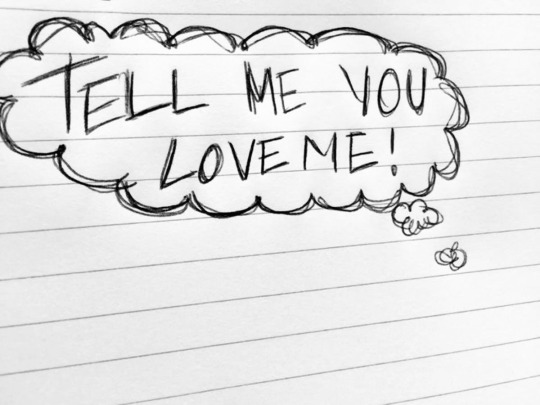 TELL ME YOU
LOVE ME!